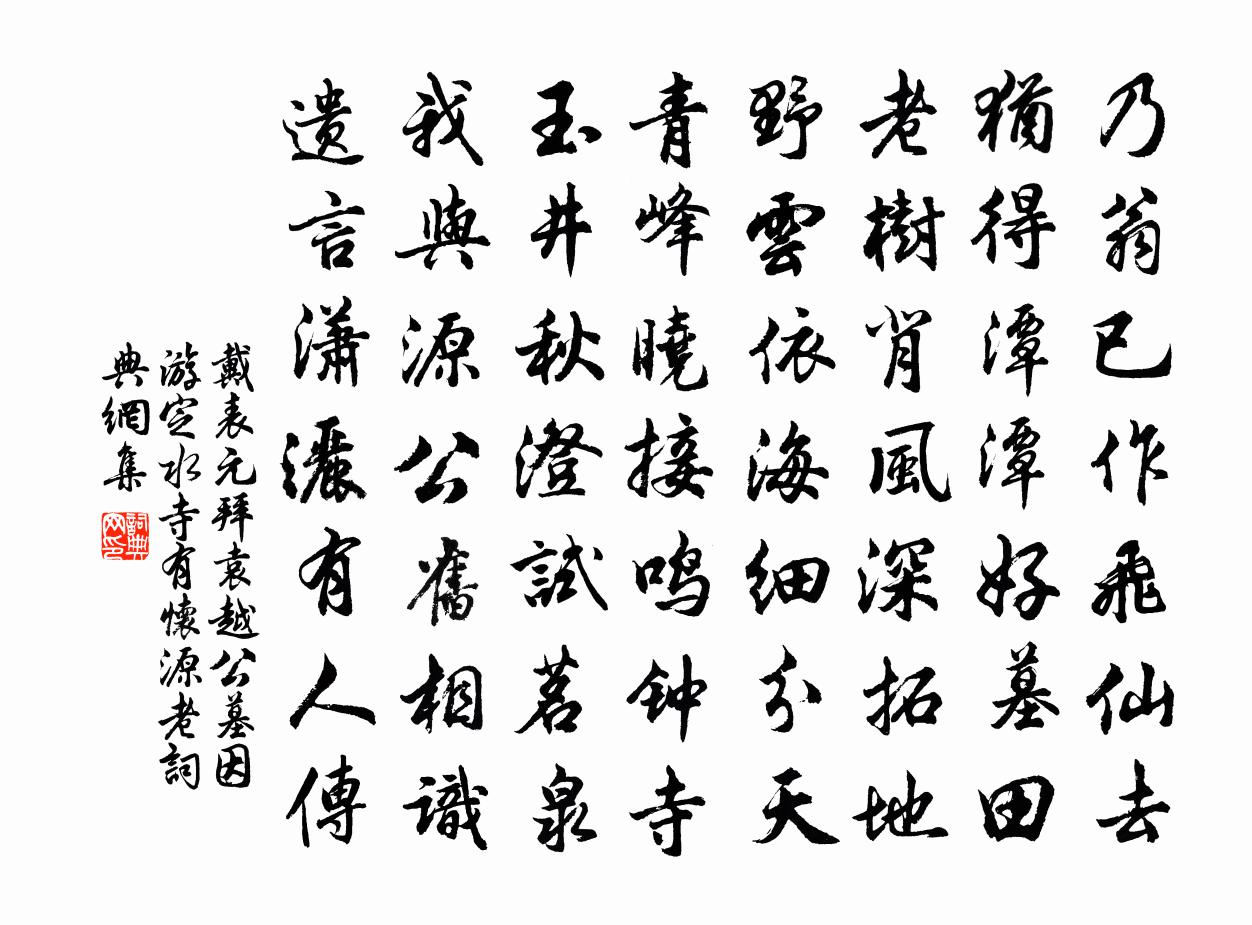 乃翁已作飛仙去
猶得潭潭好墓田
老樹肖風深拓地
野雲依海細分天
青峰曉接鸣钟寺
玉井秋澄試茗泉
我與源公舊相識
遺言瀟灑有人傳
戴表元拜袁越公墓因
游定水寺有懷源老詞
典網集
詞典
网印